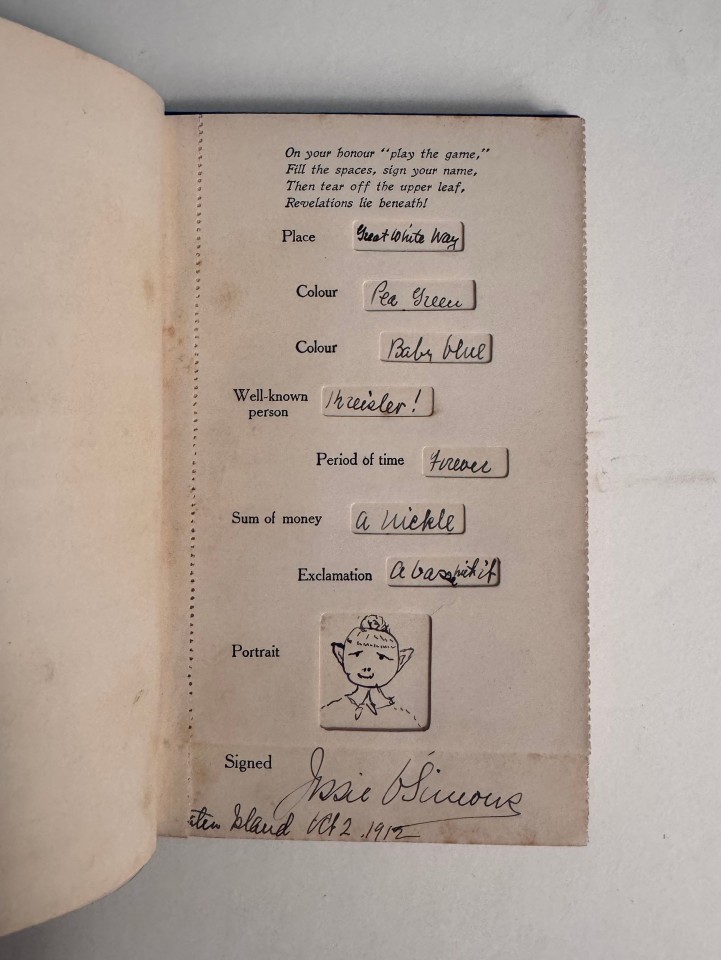 On your honour "play the game,"
Fill the spaces, sign your name,
Then tear off the upper leaf,
Revelations lie beneath!
Place Great White Way
Colour Pea Green
Colour Baby blue
Well-known person Kreisler!
Period of time Forever
Sum of money a nickle
Exclamation
Portrait
Signed Jessie Simons
aten Island Oct 2, 1912